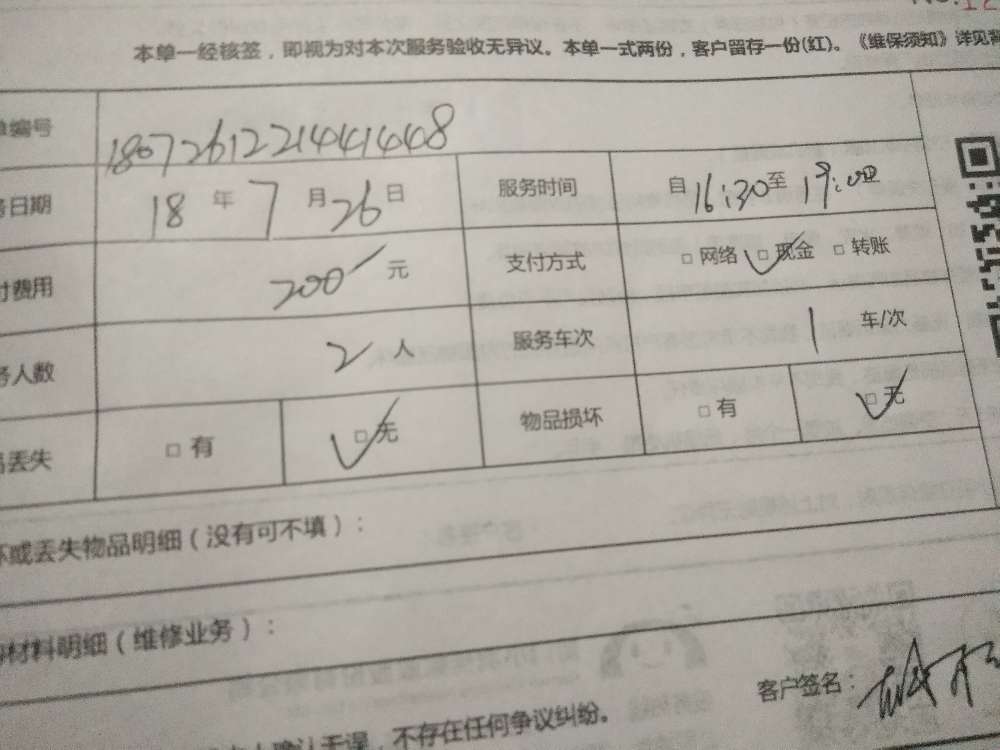 No.12
本单一经核签，即视为对本次服务验收无异议。本单一式两份，客户留存一份(红)。《维保须知》详见背
单编号 18072612214414448
务日期 18 年 7 月 26 日 服务时间 自 16:30 至 19:00
付费用 200 元 支付方式 □ 网络 □ 现金 □ 转账
务人数 2 人 服务车次 1 车/次
品丢失 □ 有 □ 无 物品损坏 □ 有 □ 无
坏或丢失物品明细（没有可不填）：
材料明细（维修业务）：
客户签名：
确认无误，不存在任何争议纠纷。